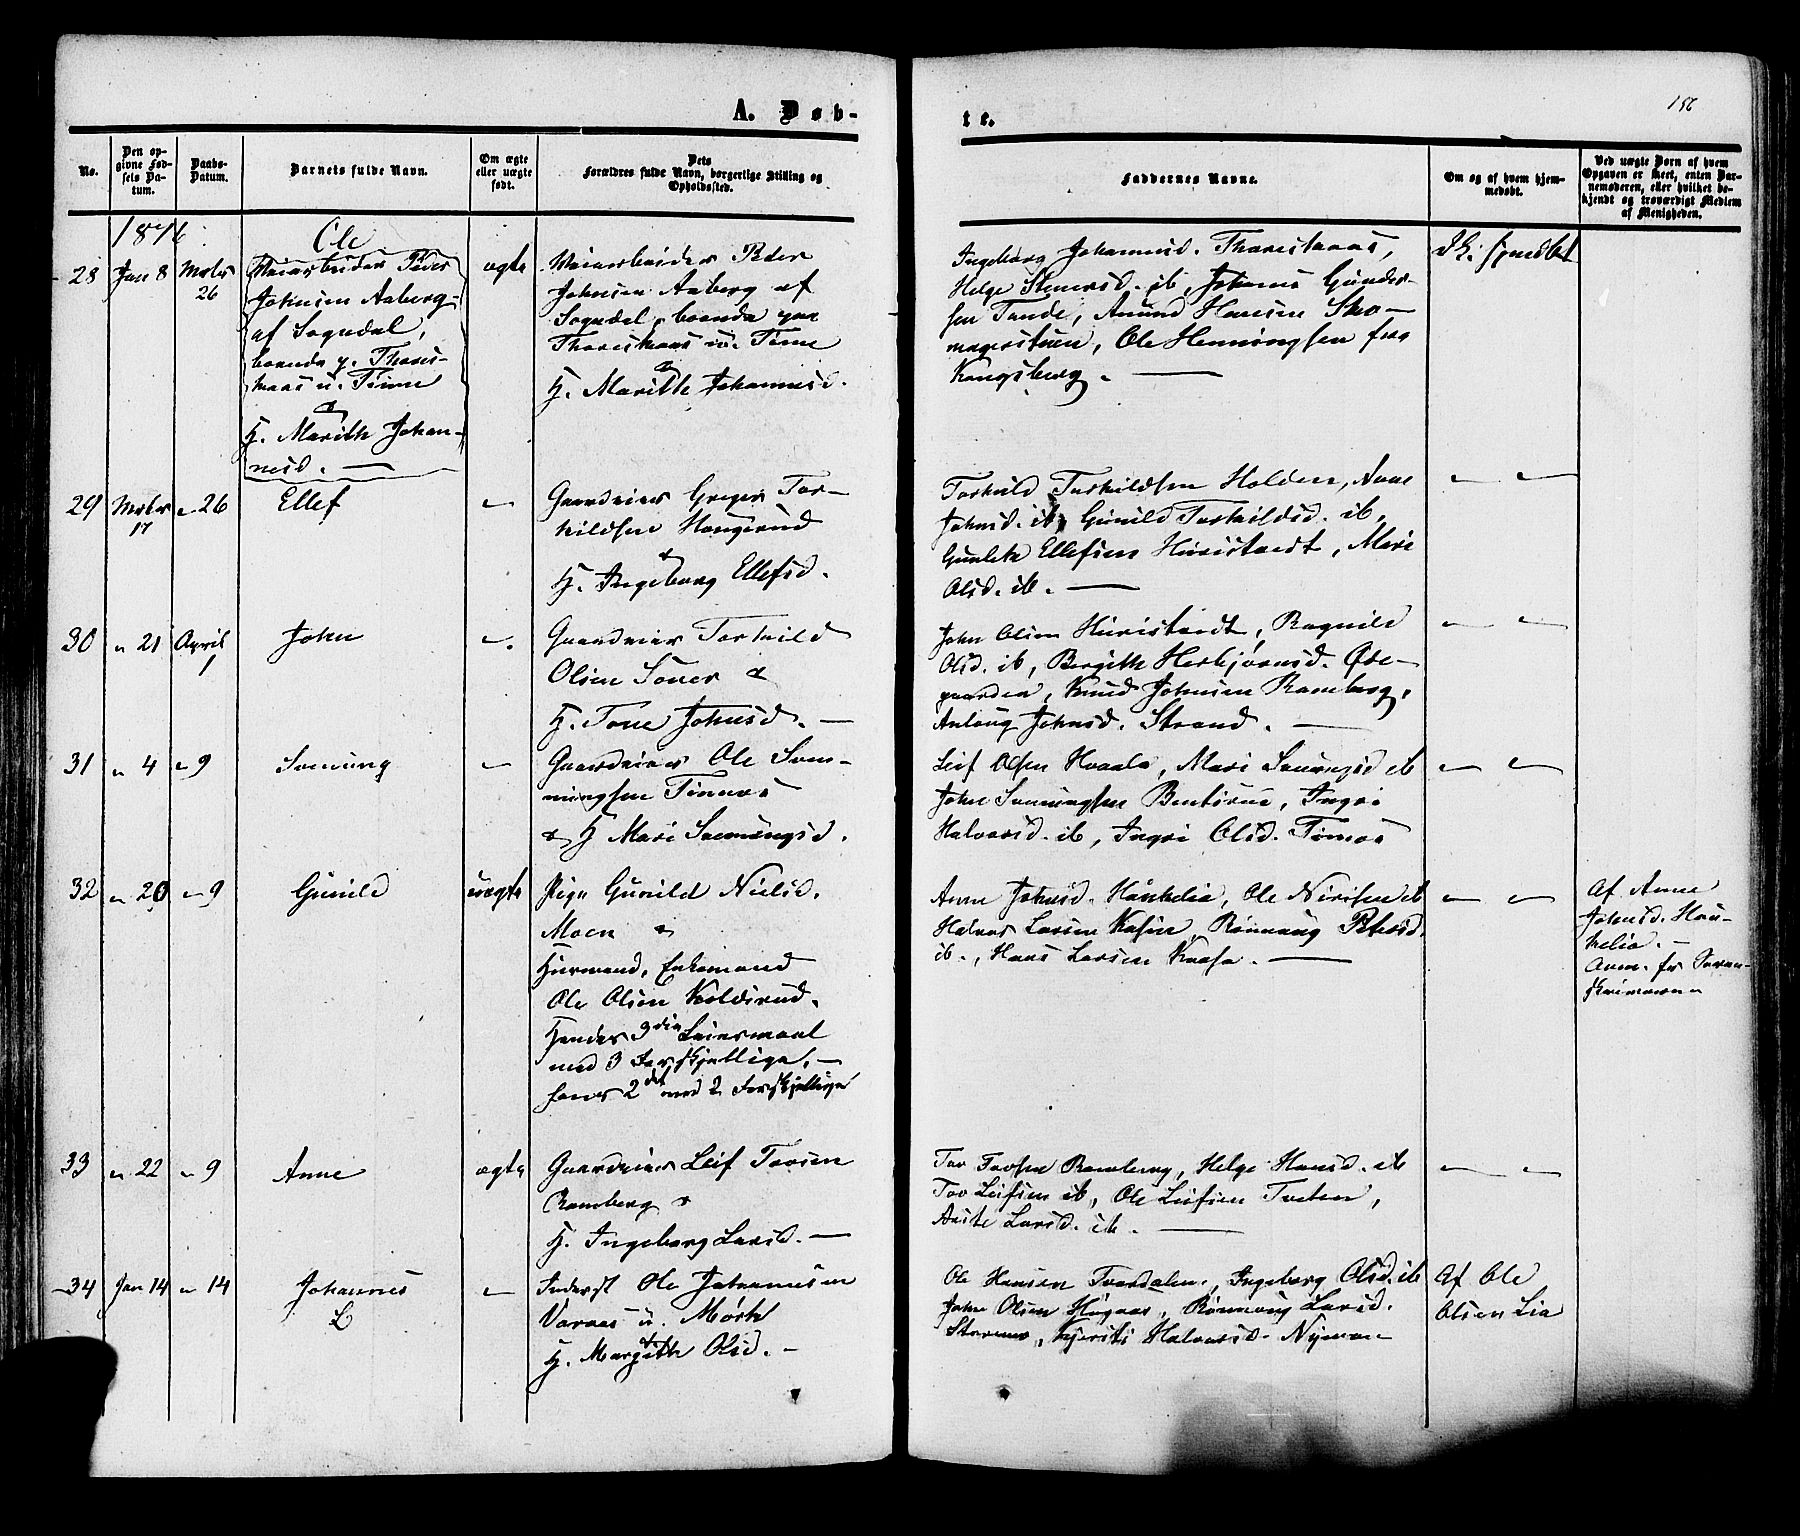 A. Døb-
te.
156
No.
Den op-
givne Fød-
sels Da-
tum.
Daabs-
Datum.
Barnets fulde Navn.
Om ægte
eller uægte
født.
Dets
Forældres fulde Navn, borgerlige Stilling og
Opholdssted.
Faddernes Navne.
Om og af hvem hjem-
medøbt.
Ved uægte Børn af hvem
Opgaven er skeet, enten Bar-
nemoderen, eller hvilket be-
kjendt og troværdigt Medlem
af Menigheden.
1876
28 Jan 8 Marts
26
Ole
Veiarbeider Peder
Johnsen Aaberg
af Sogndal,
boende p.
u. Tinne
&
H. Marith Johan-
nesd.
ægte
Veiarbeider Peder
Johnsen Aaberg af
Sogndal, boende paa
u. Tinne
&
H. Marith Johannesd.
Ingeborg Johannesd.
Helge ib, Johannes Gunder-
sen Tande, Amund Hansen Sko-
magerstuen, Ole Henningsen fra
Kongsberg.
29 Marts
17
" 26
Ellef
"
Gaardeier Greger Tor-
kildsen Haugerud
&
H. Ingeborg Ellefsd.
Torkild Torkildsen Holden, Anne
Johnsd. ib, Gunild Torkildsd. ib,
Gunlek Ellefsen Huvistvedt, Mari
Olsd. ib.
" "
30 " 21 April
1
John
".
Gaardeier Torkild
Olsen &
H. Tone Johnsd.
John Olsen Huvistvedt, Ragnild
Olsd. ib, Bergith Herbjørnsd. Øde-
gaarden, Knud Johnsen Ramberg,
Anlaug Johnsd. Strand.
" "
31 " 4 " 9
Sveinung
"
Gaardeier Ole Svei-
nungsen Tinnes
& H. Mari Sveinungsd.
Leif Olsen Hvaale, Mari Sveinungsd ib
John Sveinungsen, Ingri
Halvorsd. ib, Ingri Olsd. Tinnes
" "
32 " 20 " 9
Gunild
uægte
Pige Gunild Nielsd.
Moen &
Huusmand, Enkemand
Ole Olsen Koldsrud.
Hendes 3die Leiermaal
med 3 Forskjellige,
hans 2det med 2 Forskjellige
Anne Johnsd. Haukelia, Ole ib
Halvor Larsen, Rønnaug Petersd.
ib., Hans Larsen Kaasa.
" "
Af Anne
Johnsd. Hau-
kelia.
33 " 22 " 9
Anne
ægte
Gaardeier Leif Tovsen
Ramberg &
H. Ingeborg Larsd.
Tov Tovsen Ramberg, Helge Hansd. ib
Tov Leifsen ib, Ole Leifsen Tveten,
Aaste Larsd. ib.
" "
34 Jan 14 " 14
Johannes
L
"
Inderst Ole Johannesen
u. Mørk
&
H. Margith Olsd.
Ole Hansen Tverdalen, Ingeborg Olsd. ib
John Olsen Høgaas, Rønnaug Larsd.
Kjersti Halvorsd. Nymoen
Af Ole
Olsen Lia